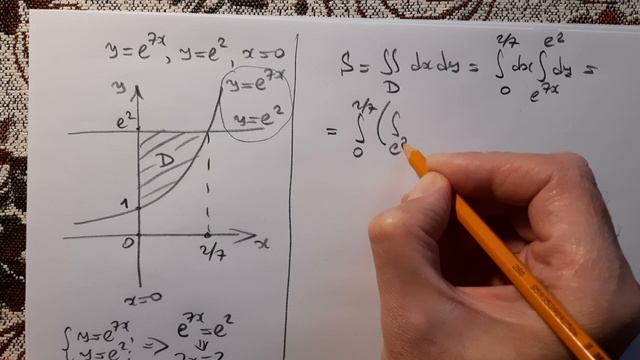 y=e^{7x}, y=e^2, x=0
y
y=e^{7x}
e^2
y=e^2
D
1
0
2/7
x
x=0
{ y=e^{7x}; => e^{7x}=e^2
y=e^2; ⇓
7x=2
S = ∬_D dxdy = ∫_0^{2/7} dx ∫_{e^{7x}}^{e^2} dy =
= ∫_0^{2/7} ( ∫_e